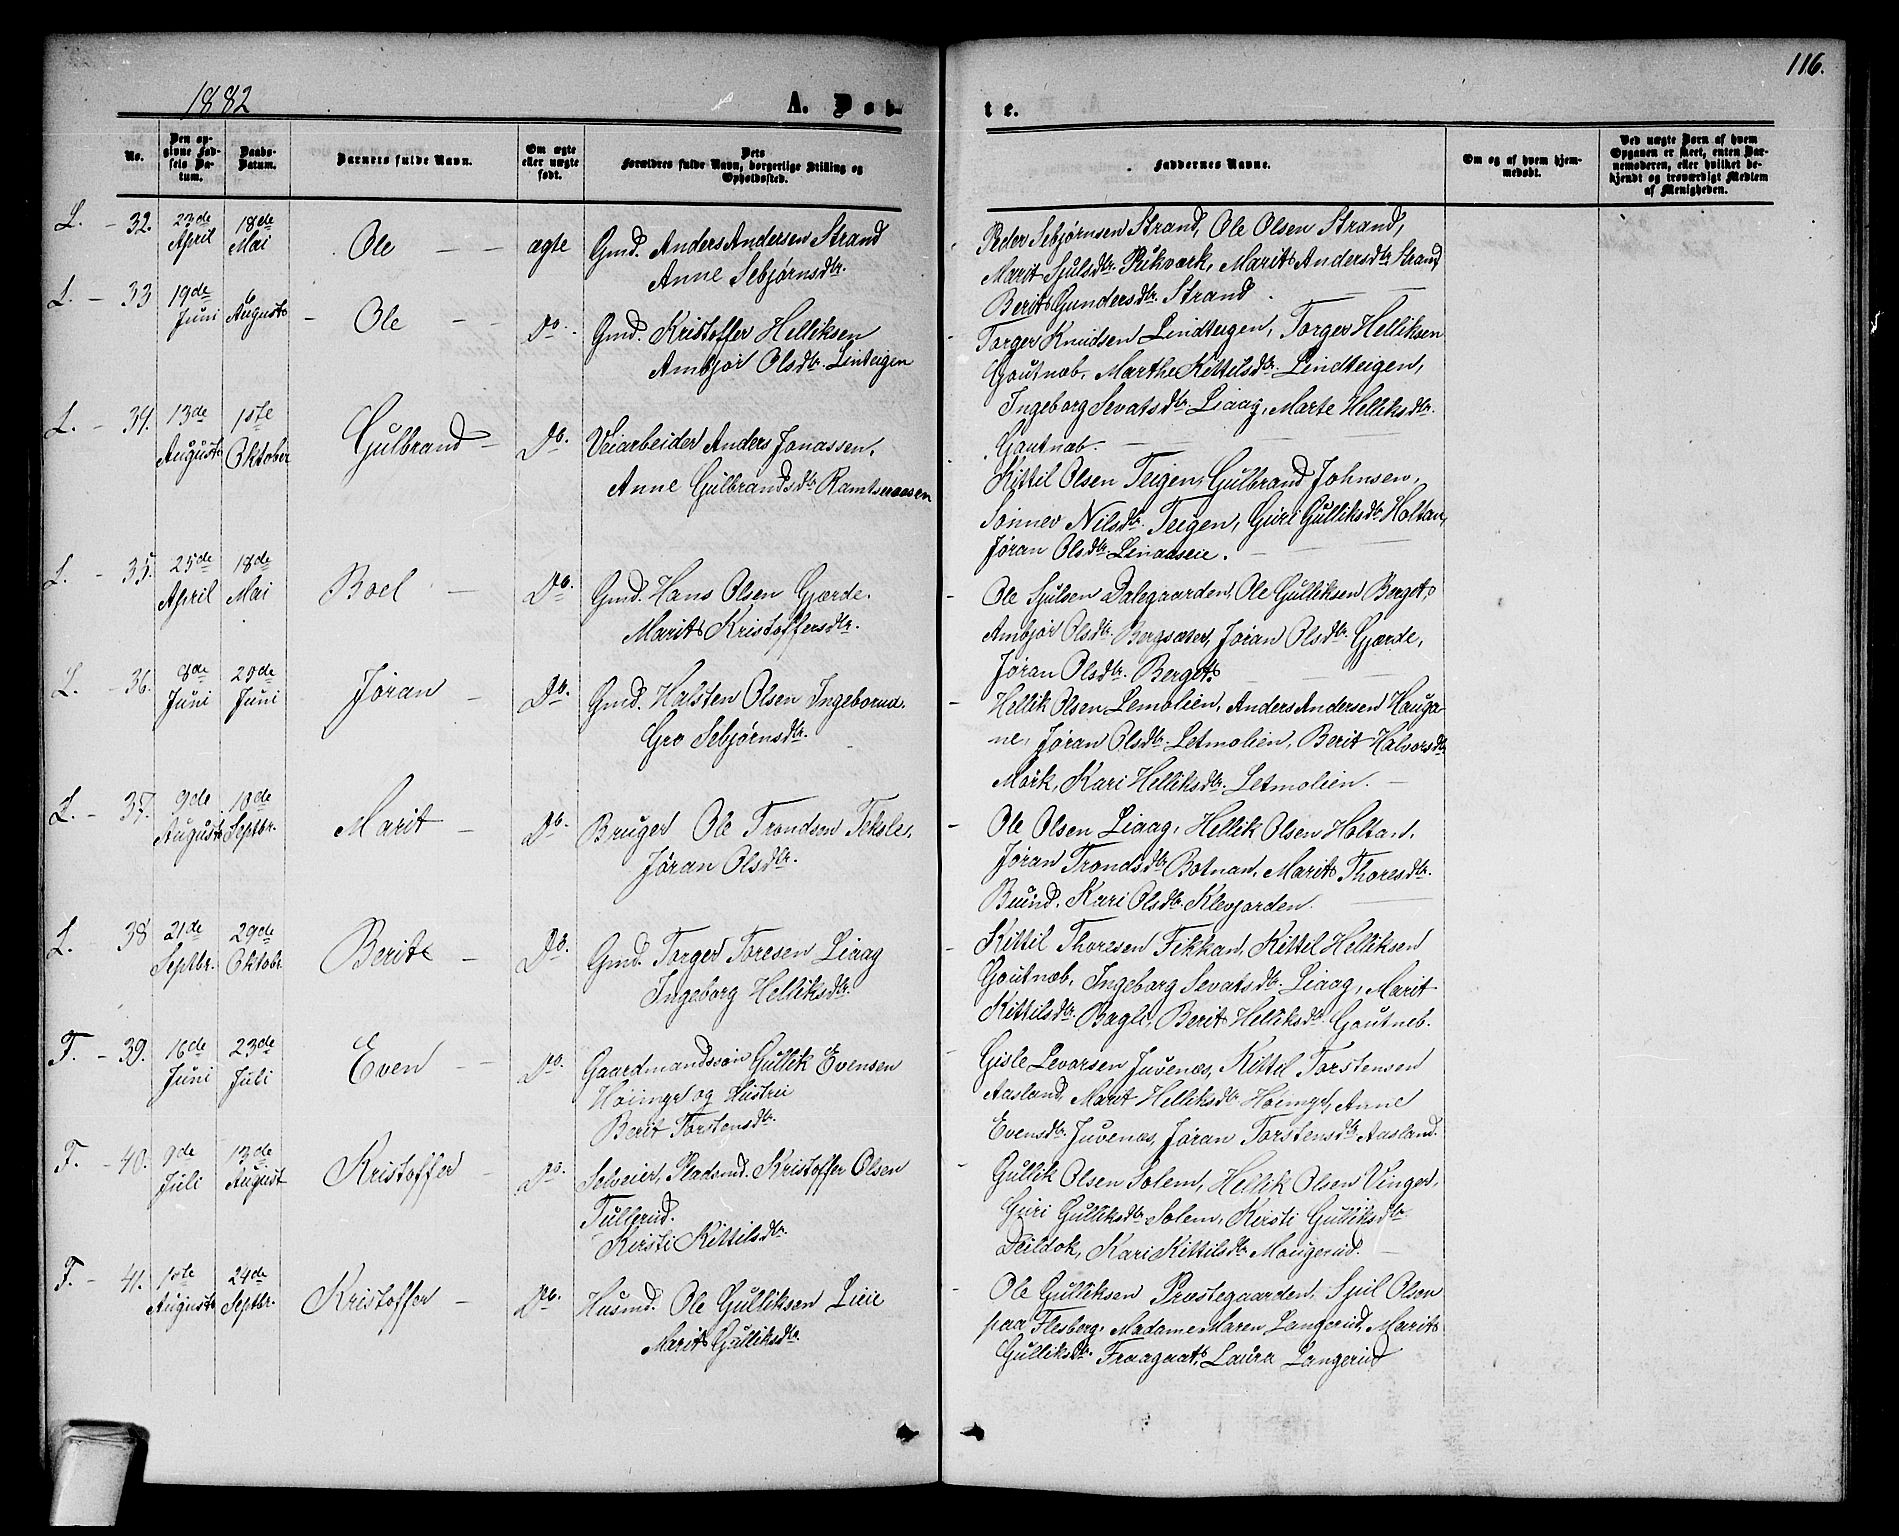 1882
A. Døb-
te.
116.
No.
Den op-
givne Fød-
sels Da-
tum.
Daabs-
Datum.
Barnets fulde Navn.
Om ægte
eller uægte
født.
Dets
Forældres fulde Navn, borgerlige Stilling og
Opholdssted.
Faddernes Navne.
Om og af hvem hjem-
medøbt.
Ved uægte Børn af hvem
Opgaven er skeet, enten Bar-
nemoderen, eller hvilket be-
kjendt og troværdigt Medlem
af Menigheden.
L. - 32. 23de April 18de Mai Ole - - ægte Gmd. Anders Andersen Strand
Anne Sebjørnsdtr.
Peder Sebjørnsen Strand, Ole Olsen Strand,
Marit Sjulsdtr. Rikværk, Marit Andersdtr Strand
Berit Gundersdtr. Strand.
L. - 33 19de Juni 6 August - Ole - - Do. Gmd. Kristoffer Helliksen
Ambjør Olsdtr. Linteigen
Torger Knudsen Lindteigen, Torger Helliksen
Goutnæb, Marthe Kittilsdtr. Lindteigen,
Ingeborg Sevatsdtr. Liaag, Marte Helliksdtr.
Goutnæb. -
L. - 34. 13de August 1ste Oktober Gulbrand - Do. Veiarbeider Anders Jonassen.
Anne Gulbrandsdtr Ramtsnaasen
Kittil Olsen Teigen, Gulbrand Johnsen,
Sønnev Nilsdtr. Teigen, Guri Gulliksdtr Holtan,
Jøran Olsdtr Linaaseie. -
L. - 35. 25de April 18de Mai Boel - Do. Gmd. Hans Olsen Gjærde.
Marit Kristoffersdtr.
Ole Sjulsen Dalegaarden, Ole Gulliksen Berget,
Ambjør Olsdtr. Bergsæter, Jøran Olsdtr. Gjærde,
Jøran Olsdtr. Berget
L. - 36. 8de Juni 29de Juni Jøran - Do. Gmd. Halsten Olsen Ingeborud.
Gro Sebjørnsdtr.
Hellik Olsen Lemolien, Anders Andersen Hauga-
ne, Jøran Olsdtr. Letmolien, Berit Halvorsdtr
Mørk, Kari Helliksdtr. Letmolien. -
L. - 37. 9de August 10de Septbr. Marit - Do. Bruger Ole Trondsen Teksle,
Jøran Olsdtr.
Ole Olsen Liaag, Hellik Olsen Holtan,
Jøran Trondsdtr Botnan, Marit Thoresdtr.
Buind. Kari Olsdtr. Klevjorden.
L. - 38 21de Septbr. 29de Oktobr Berit - Do. Gmd. Torger Toresen Liaag
Ingeborg Helliksdtr
Kittil Thoresen Fekkan, Kittil Helliksen
Goutnæb, Ingeborg Sevatsdtr. Liaag, Marit
Kittilsdtr. Bagle, Berit Helliksdtr. Goutneb.
F. - 39. 16de Juni 23de Juli Even - Do. Gaardmandssøn Gullik Evensen
Høimyr og Hustru
Berit Torstensdtr.
Gisle Levorsen Juvenæs, Kittil Torstensen
Aasland, Marit Helliksdtr Høimyr, Anne
Evensdtr. Juvenæs, Jøran Torstensdtr Aasland.
F. - 40. 9de Juli 13de August Kristoffer - Do. Selveier, Pladsmd. Kristoffer Olsen
Tullerud.
Kirsti Kittilsdtr.
Gullik Olsen Solem, Hellik Olsen Vinger,
Guri Gulliksdtr Solem, Kirsti Gulliksdtr.
Deildok, Kari Kittilsdtr Mougerud. -
F. - 41. 1ste August 24de Septbr. Kristoffer - Do. Husmd. Ole Gulliksen Lieie
Marit Gulliksdtr
Ole Gulliksen Præstegaarden, Sjul Olsen
paa Flesberg, Madame Maren Langerud, Marit
Gulliksdtr. Fraagaat, Laura Langerud